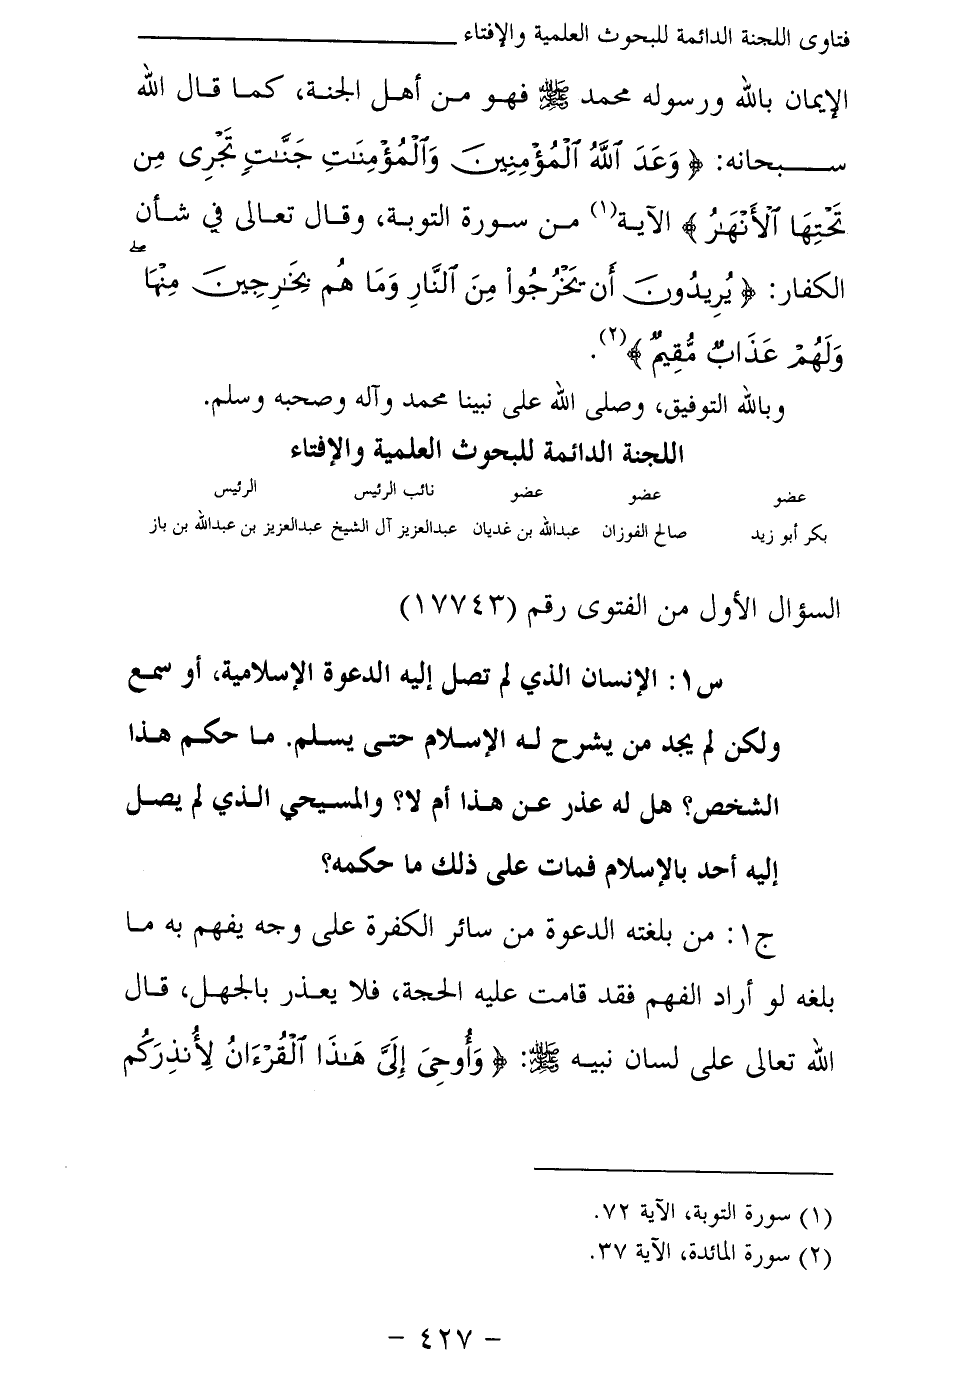 فتاوى اللجنة الدائمة للبحوث العلمية والإفتاء
الإيمان بالله ورسوله محمد ﷺ فهو من أهل الجنة، كما قال الله
سبحانه: ﴿ وَعَدَ ٱللَّهُ ٱلْمُؤْمِنِينَ وَٱلْمُؤْمِنَٰتِ جَنَّٰتٍ تَجْرِى مِن
تَحْتِهَا ٱلْأَنْهَٰرُ ﴾ الآية(١) من سورة التوبة، وقال تعالى في شأن
الكفار: ﴿ يُرِيدُونَ أَن يَخْرُجُوا۟ مِنَ ٱلنَّارِ وَمَا هُم بِخَٰرِجِينَ مِنْهَا ۖ
وَلَهُمْ عَذَابٌ مُّقِيمٌ ﴾(٢).
وبالله التوفيق، وصلى الله على نبينا محمد وآله وصحبه وسلم.
اللجنة الدائمة للبحوث العلمية والإفتاء
عضو عضو عضو نائب الرئيس الرئيس
بكر أبو زيد صالح الفوزان عبدالله بن غديان عبدالعزيز آل الشيخ عبدالعزيز بن عبدالله بن باز
السؤال الأول من الفتوى رقم (١٧٧٤٣)
س١: الإنسان الذي لم تصل إليه الدعوة الإسلامية، أو سمع
ولكن لم يجد من يشرح له الإسلام حتى يسلم. ما حكم هذا
الشخص؟ هل له عذر عن هذا أم لا؟ والمسيحي الذي لم يصل
إليه أحد بالإسلام فمات على ذلك ما حكمه؟
ج١: من بلغته الدعوة من سائر الكفرة على وجه يفهم به ما
بلغه لو أراد الفهم فقد قامت عليه الحجة، فلا يعذر بالجهل، قال
الله تعالى على لسان نبيه ﷺ: ﴿ وَأُوحِىَ إِلَىَّ هَٰذَا ٱلْقُرْءَانُ لِأُنذِرَكُم
(١) سورة التوبة، الآية ٧٢.
(٢) سورة المائدة، الآية ٣٧.
- ٤٢٧ -